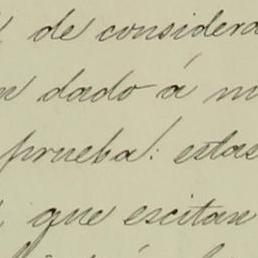 de considera
dado á
prueba: estas
que escitan